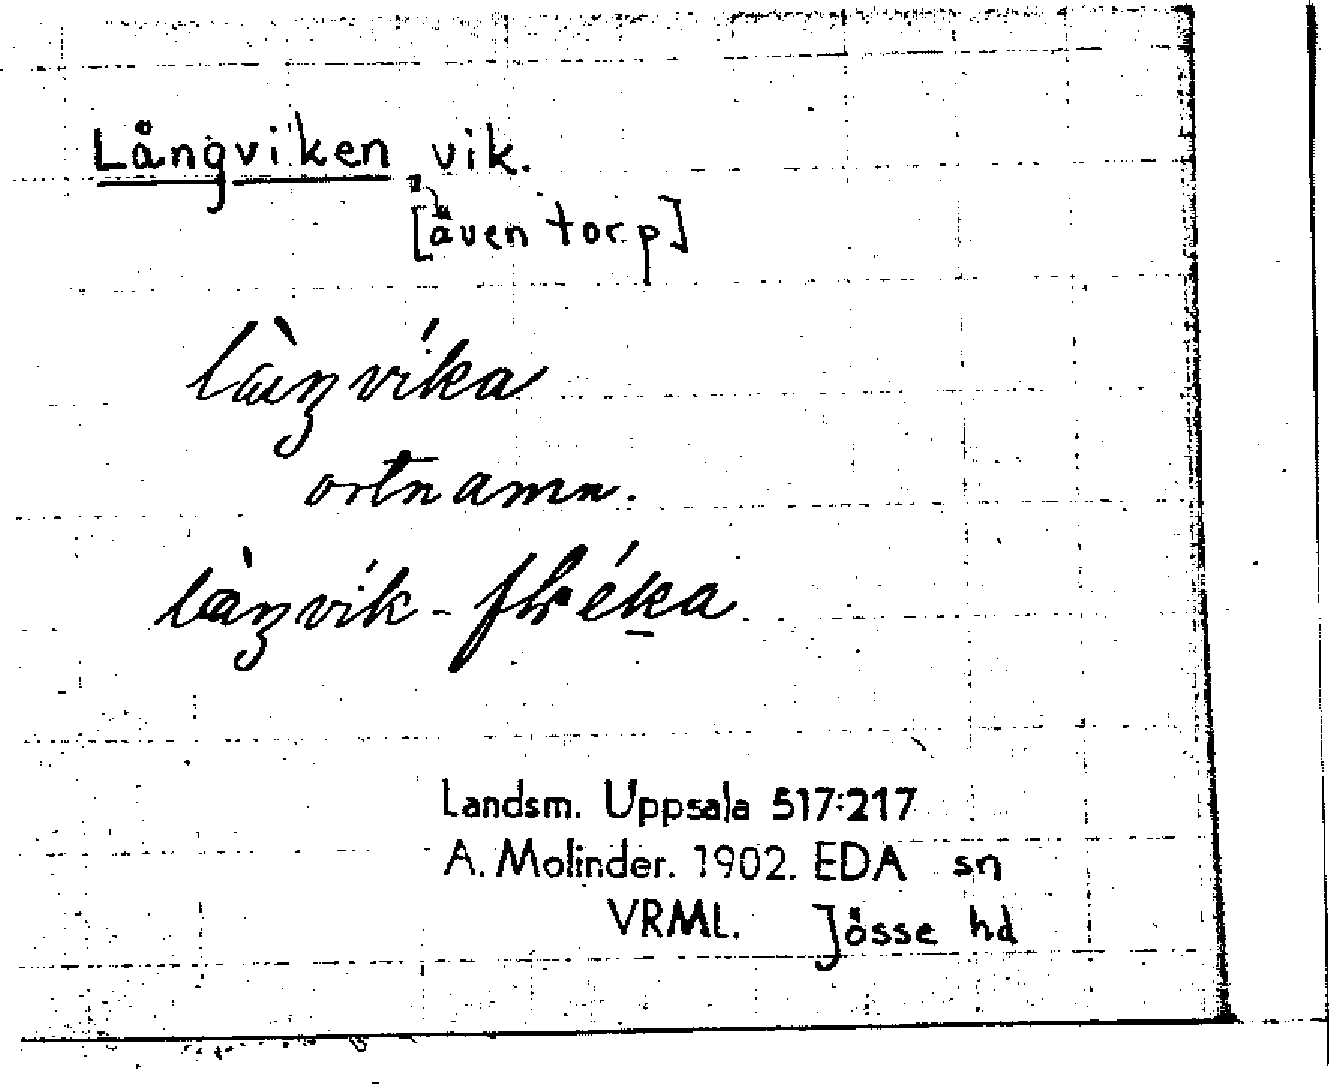 Långviken, vik.
[även torp]
ortnamn.
Landsm. Uppsala 517:217
A. Molinder. 1902. EDA sn
VRML. Jösse hd